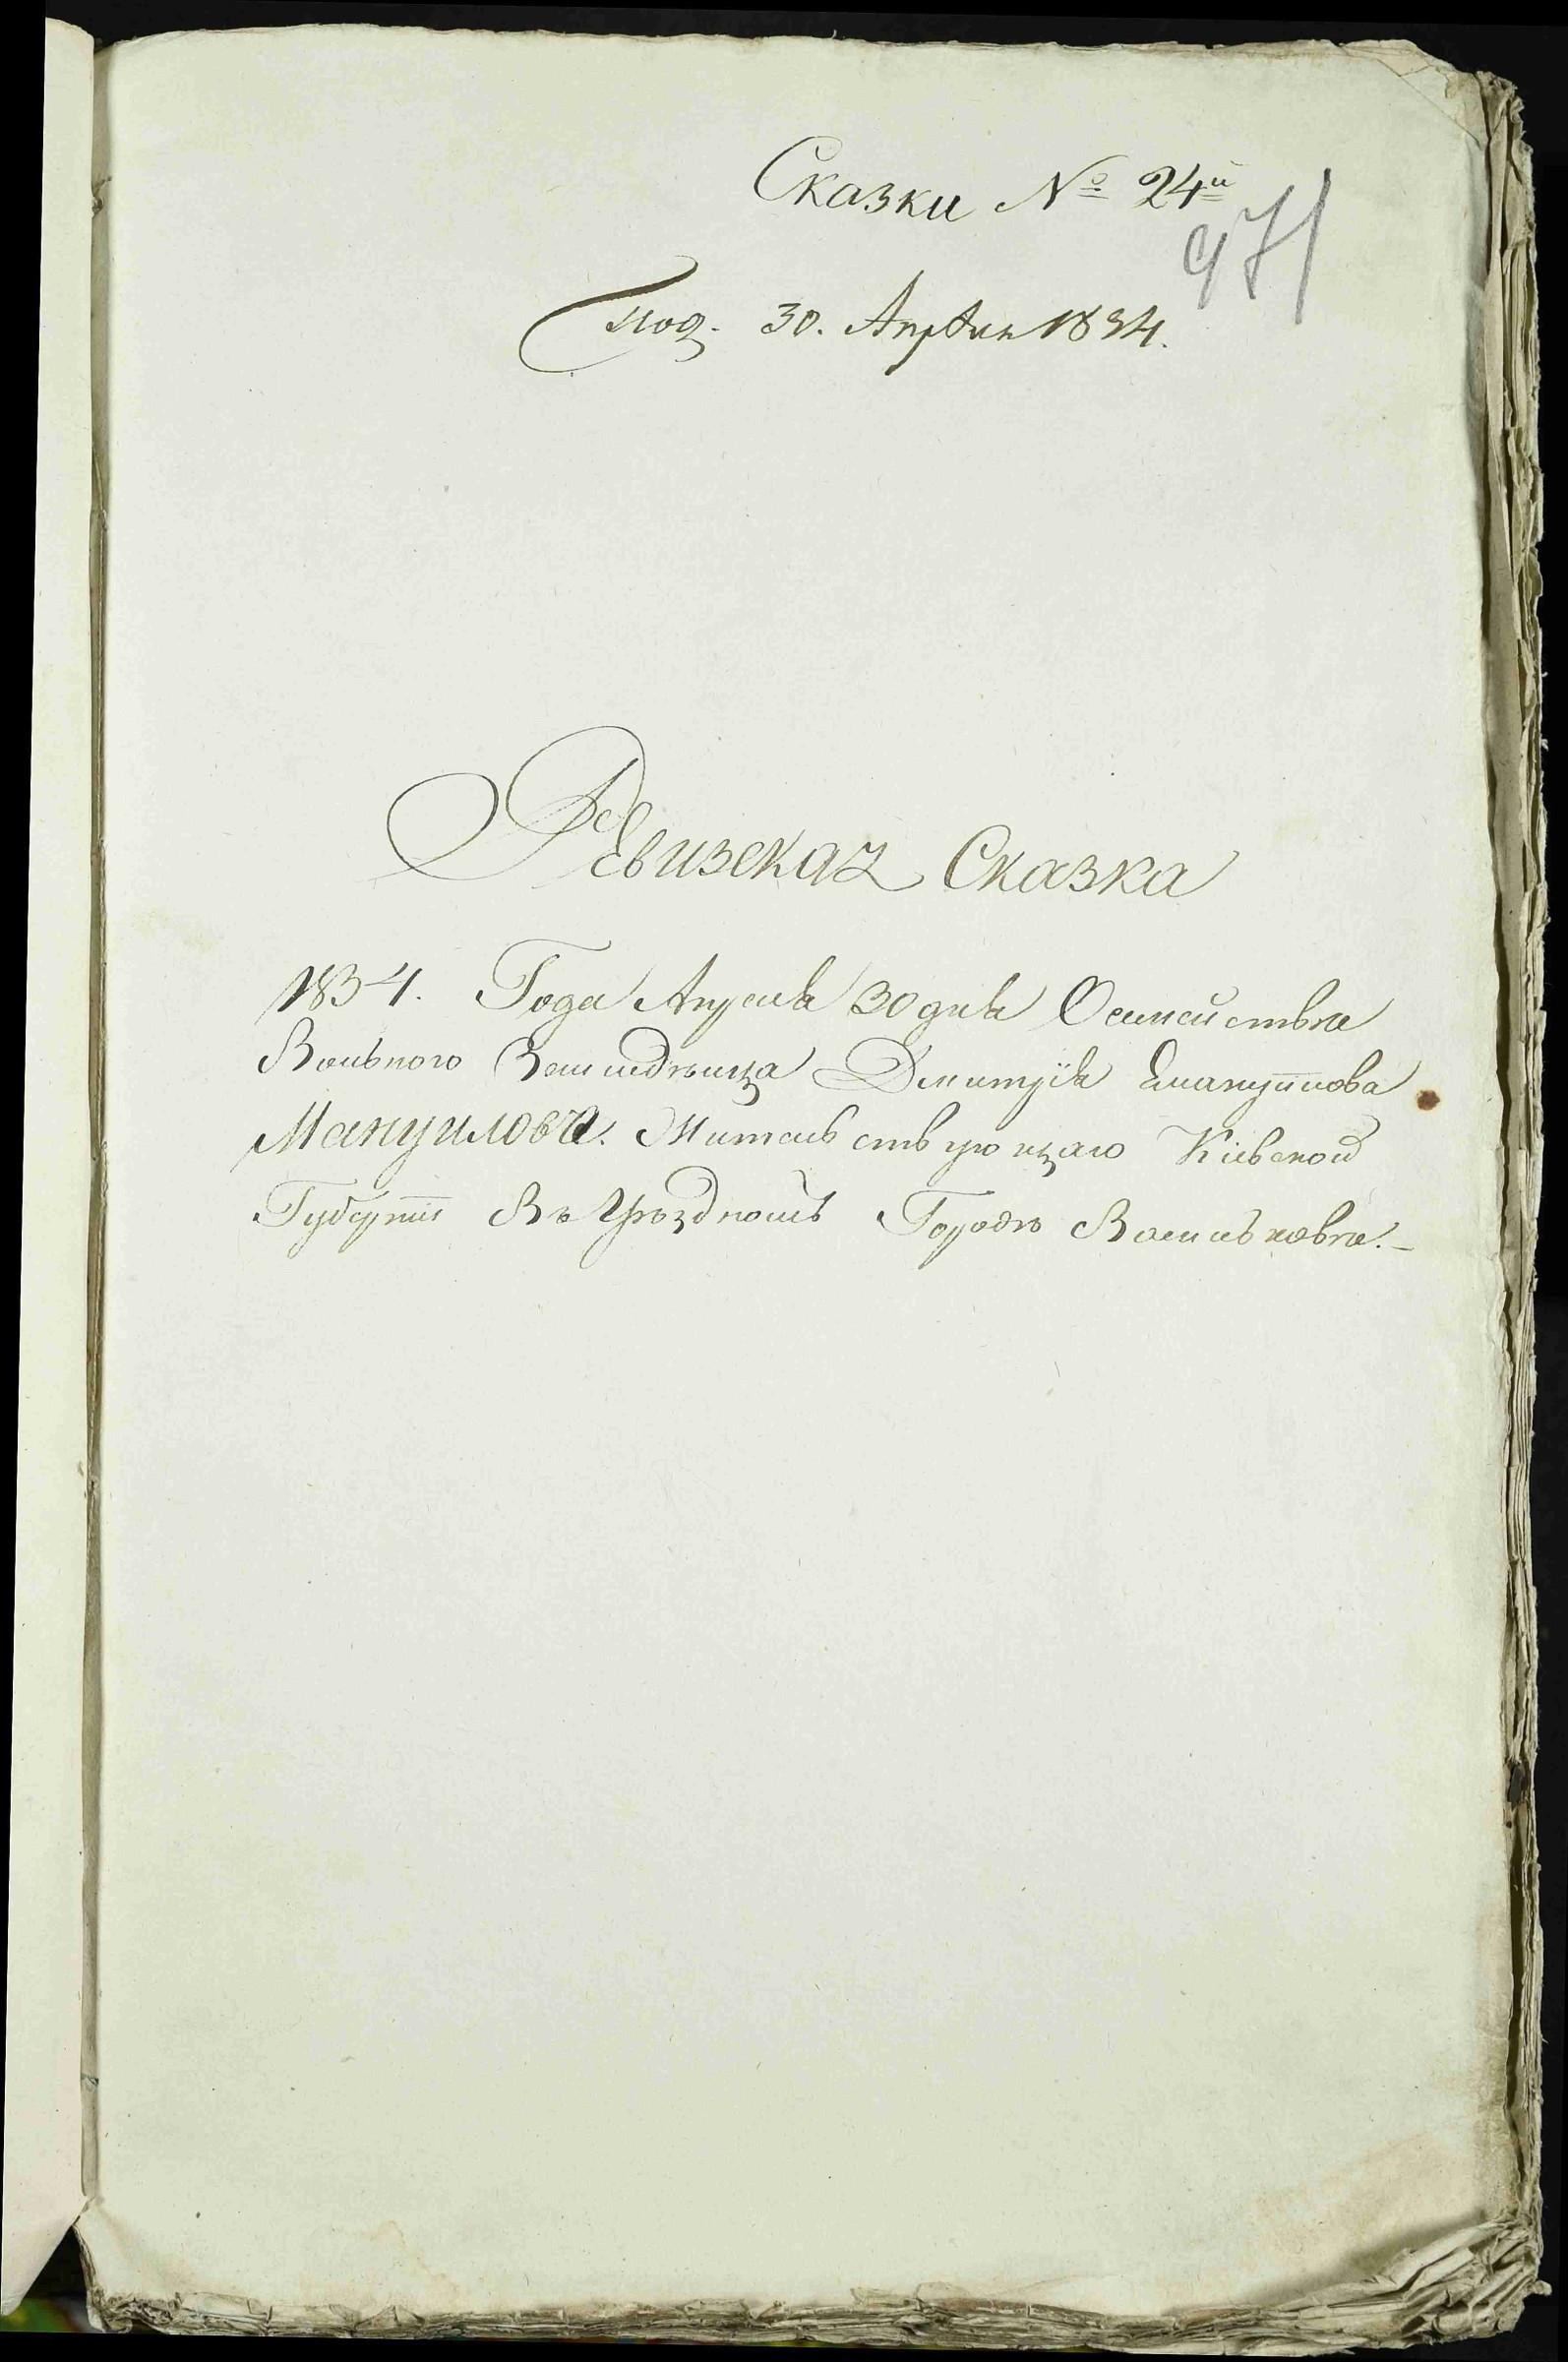 Сказки № 24й
971
Под. 30. Апрѣля 1834.
Ревизская Сказка
1834. Года Апреля 30 дня О семействѣ
Вольного Земледѣльца Дмитрія Емануилова
Мануилова. Жительствующаго Кіевской
Губерніи Въ Уѣздномъ Городѣ Васильковѣ.-